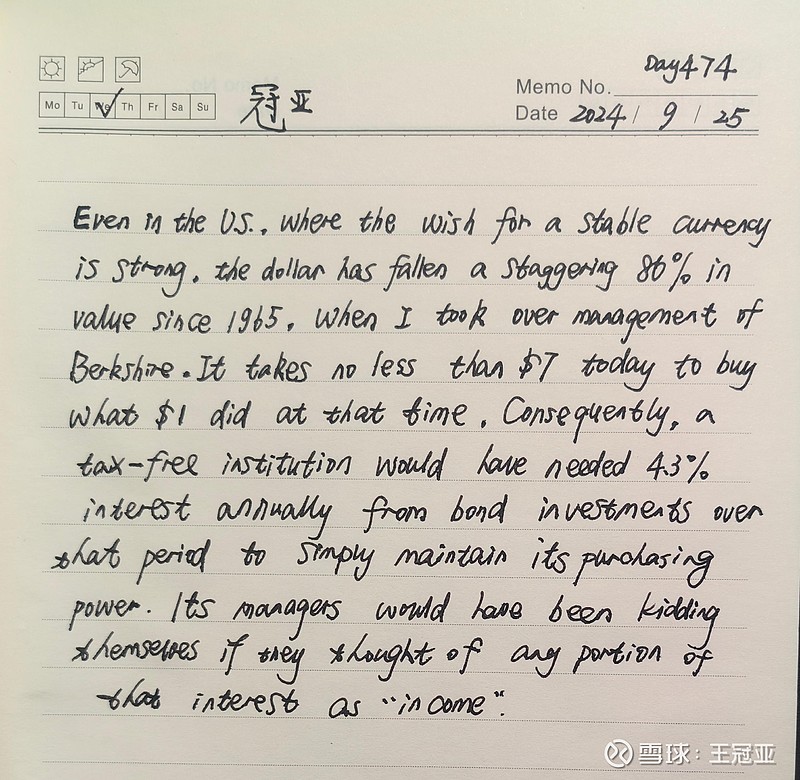 Day474
Memo No.
Mo Tu We Th Fr Sa Su
冠亚
Date 2024 / 9 / 25
Even in the U.S., where the wish for a stable currency
is strong, the dollar has fallen a staggering 86% in
value since 1965, when I took over management of
Berkshire. It takes no less than $7 today to buy
what $1 did at that time. Consequently, a
tax-free institution would have needed 4.3%
interest annually from bond investments over
that period to simply maintain its purchasing
power. Its managers would have been kidding
themselves if they thought of any portion of
that interest as "income".
雪球:王冠亚